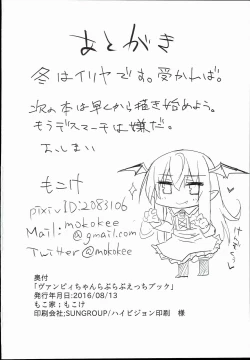 あとがき
冬はイリヤです。受かれば。
次の本は早くから描き始めよう。
もうデスマーチは嫌だ。
おしまい
もこけ
pixivID:2083106
Mail:mokokee
@gmail.com
Twitter@mokokee
奥付
「ヴァンピィちゃんらぶらぶえっちブック」
発行年月日:2016/08/13
もこ家:もこけ
印刷会社:SUNGROUP/ハイビジョン印刷 様